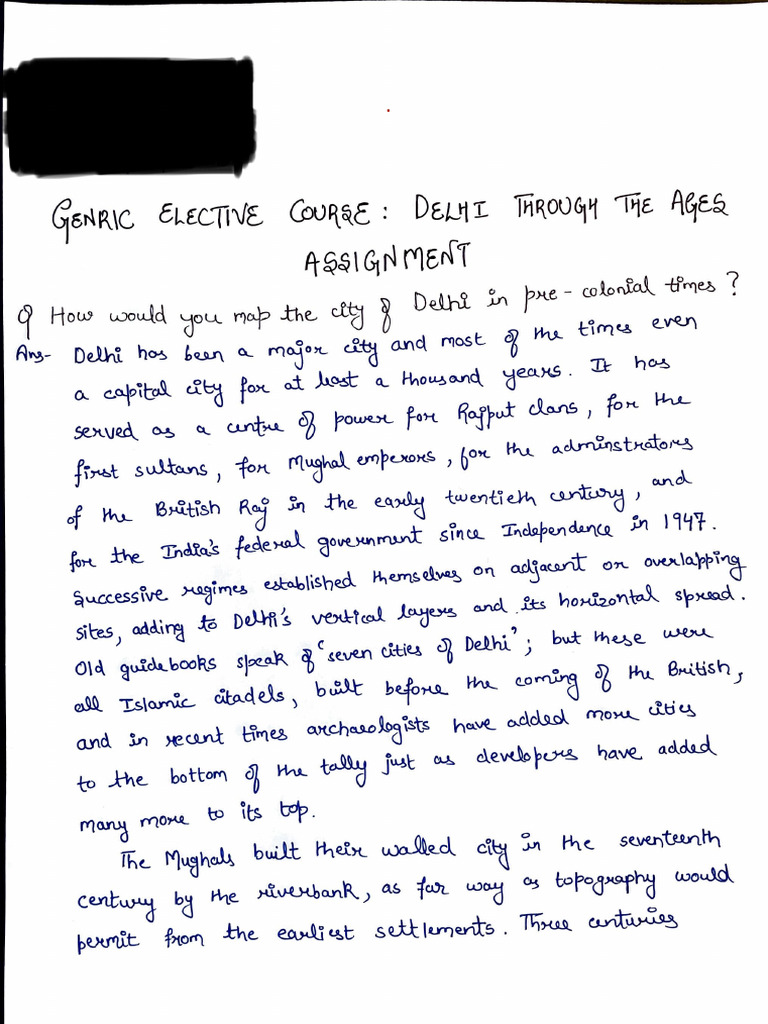 GENRIC ELECTIVE COURSE: DELHI THROUGH THE AGES
ASSIGNMENT
Q How would you map the city of Delhi in pre-colonial times?
Ans- Delhi has been a major city and most of the times even
a capital city for at least a thousand years. It has
served as a centre of power for Rajput clans, for the
first sultans, for Mughal emperors, for the adminstrators
of the British Raj in the early twentieth century, and
for the India's federal government since Independence in 1947.
Successive regimes established themselves on adjacent or overlapping
sites, adding to Delhi's vertical layers and its horizontal spread.
Old guidebooks speak of 'seven cities of Delhi'; but these were
all Islamic citadels, built before the coming of the British,
and in recent times archaeologists have added more cities
to the bottom of the tally just as developers have added
many more to its top.
The Mughals built their walled city in the seventeenth
century by the riverbank, as far way as topography would
permit from the earliest settlements. Three centuries